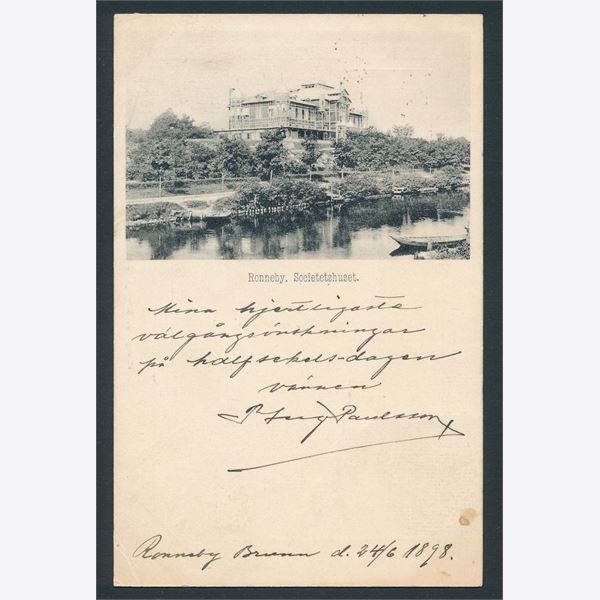 Ronneby, Societetshuset.
Mina hjertligaste
välgångsönskningar
på halfsekels-dagen
vännen
Paulsson
Ronneby Brunn d. 24/6 1898.